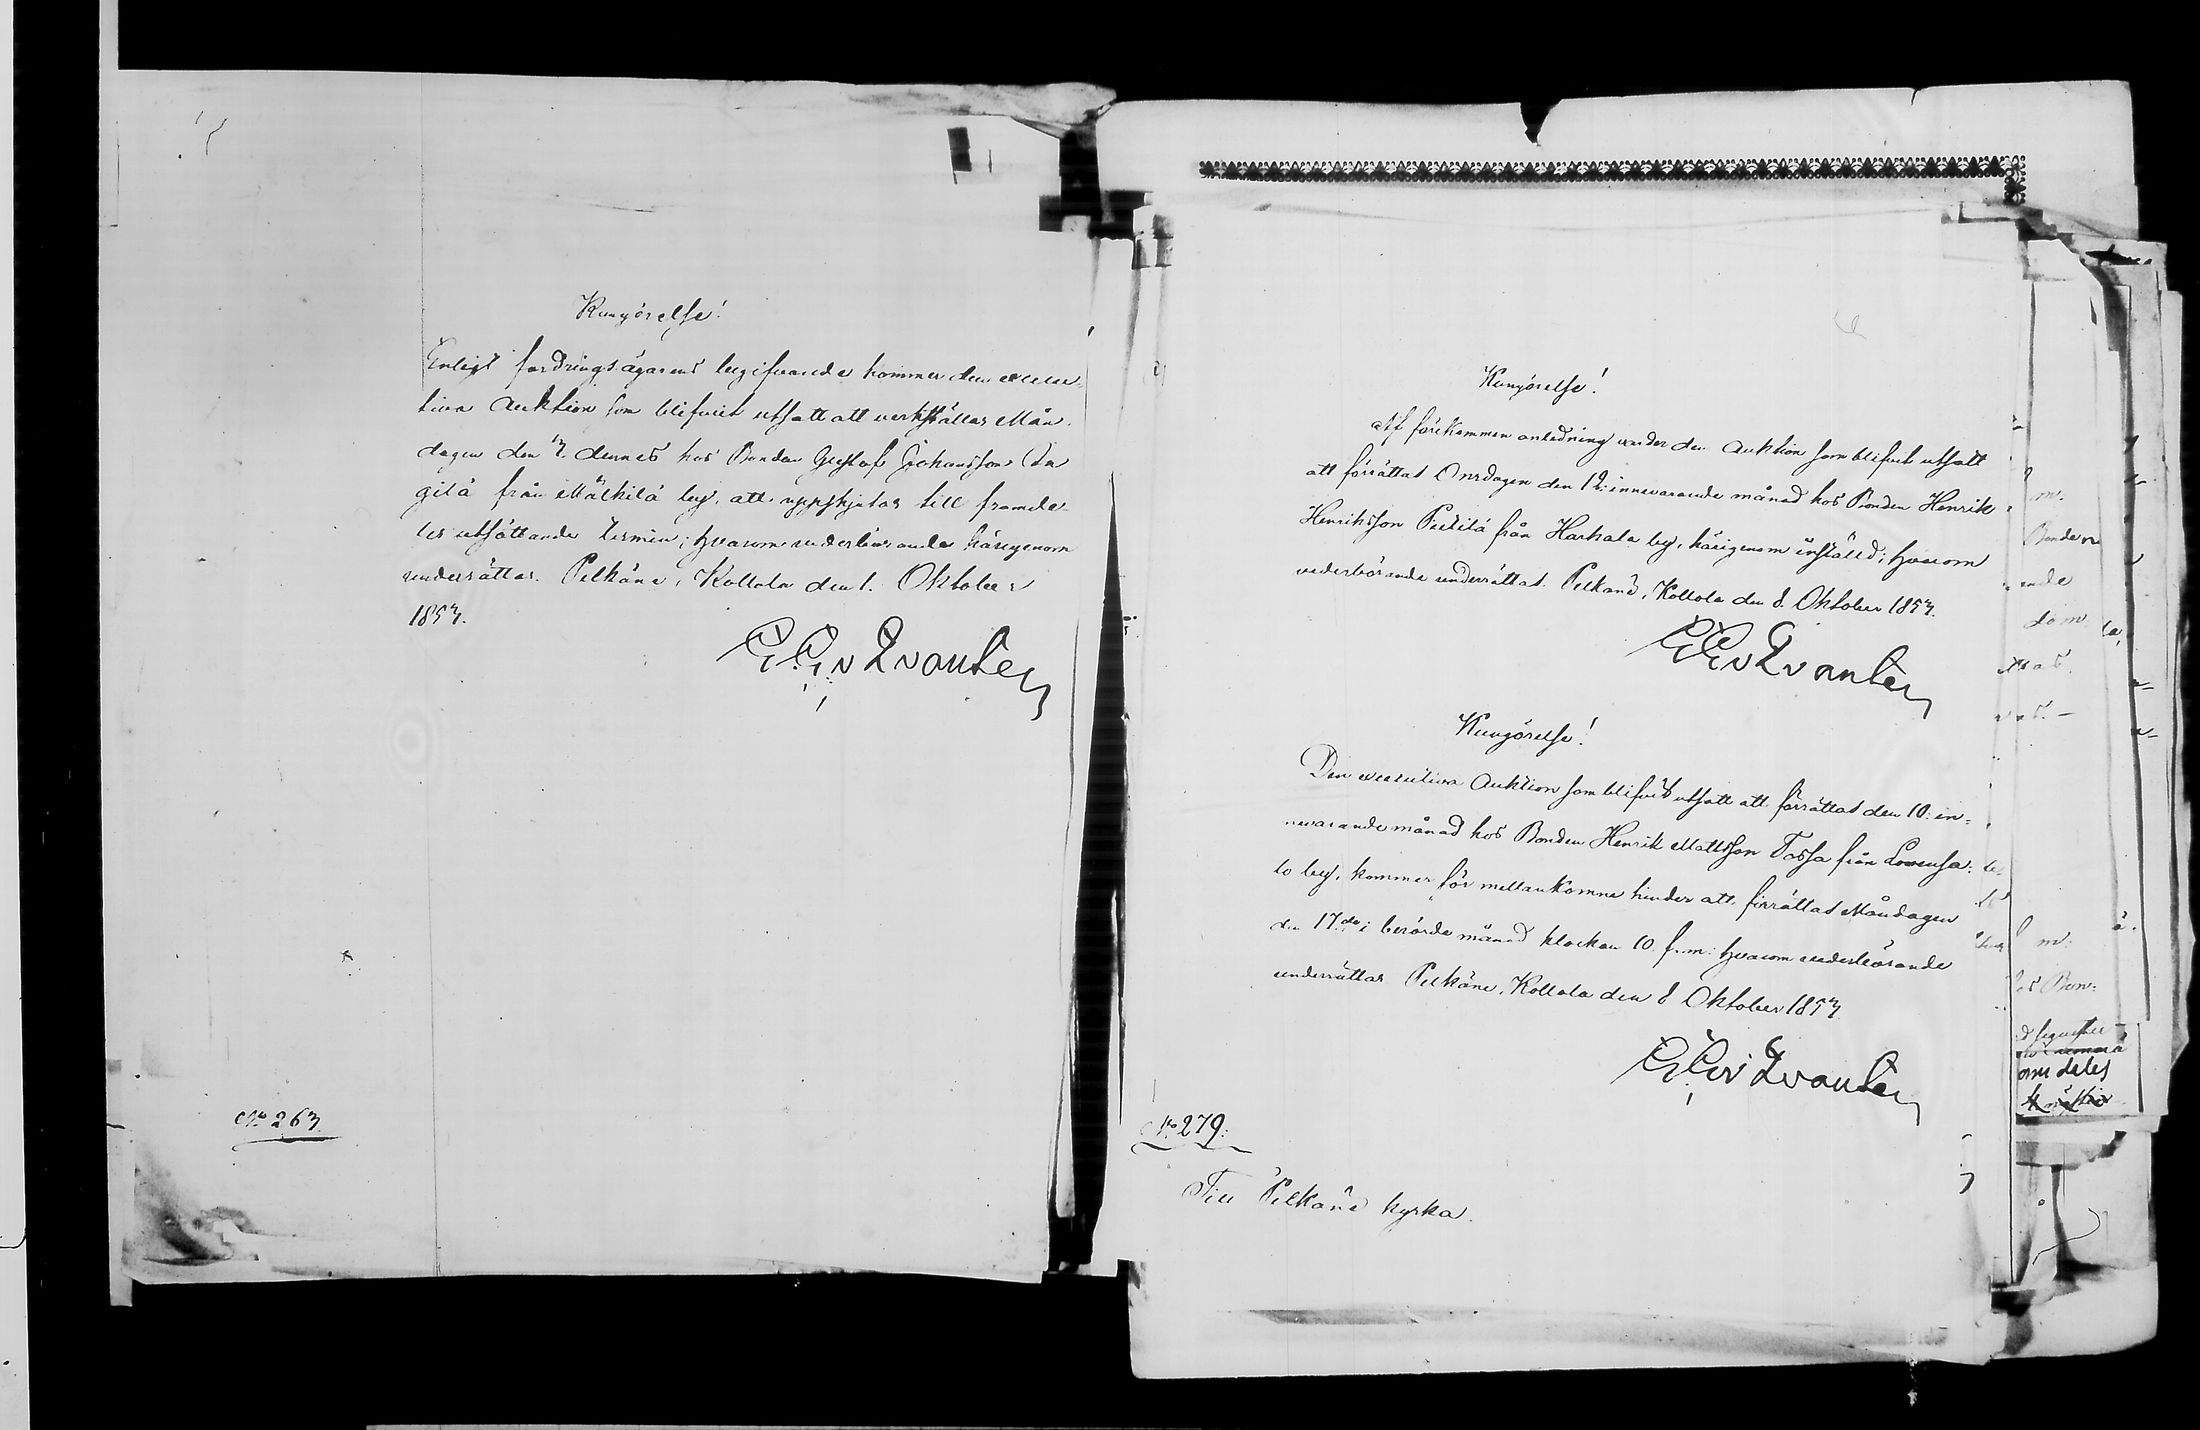 Kungörelse!
Enligt fordringsägarens begifvande kommer den execu-
tiva Auktion som blifvit utsatt att verkställas Mån-
dagen den 3. dennes hos Bonden Gustaf Johansson
gilä från Mälkilä by, att uppskjutas till framde-
les utsättande termin; hvarom vederbörande härigenom
underrättas. Pelkäne, Kollola den 1. Oktober
1853.
No 263.
Kungörelse!
Af förekommen anledning varder den Auktion som blifvit utsatt
att förrättas Onsdagen den 12. innevarande månad hos Bonden Henrik
Henriksson Pietilä från Harhala by, härigenom inställd; hvarom
vederbörande underrättas. Pelkäne, Kollola den 8. Oktober 1853.
Kungörelse!
Den executiva Auktion som blifvit utsatt att förrättas den 10. in-
nevarande månad hos Bonden Henrik Mattsson Tossa från
to by, kommer för mellankomne hinder att förrättas Måndagen
den 17.de i berörde månad klockan 10 f.m. hvarom vederbörande
underrättas Pelkäne, Kollola den 8 Oktober 1853.
No 279.
Till Pelkäne kyrka.